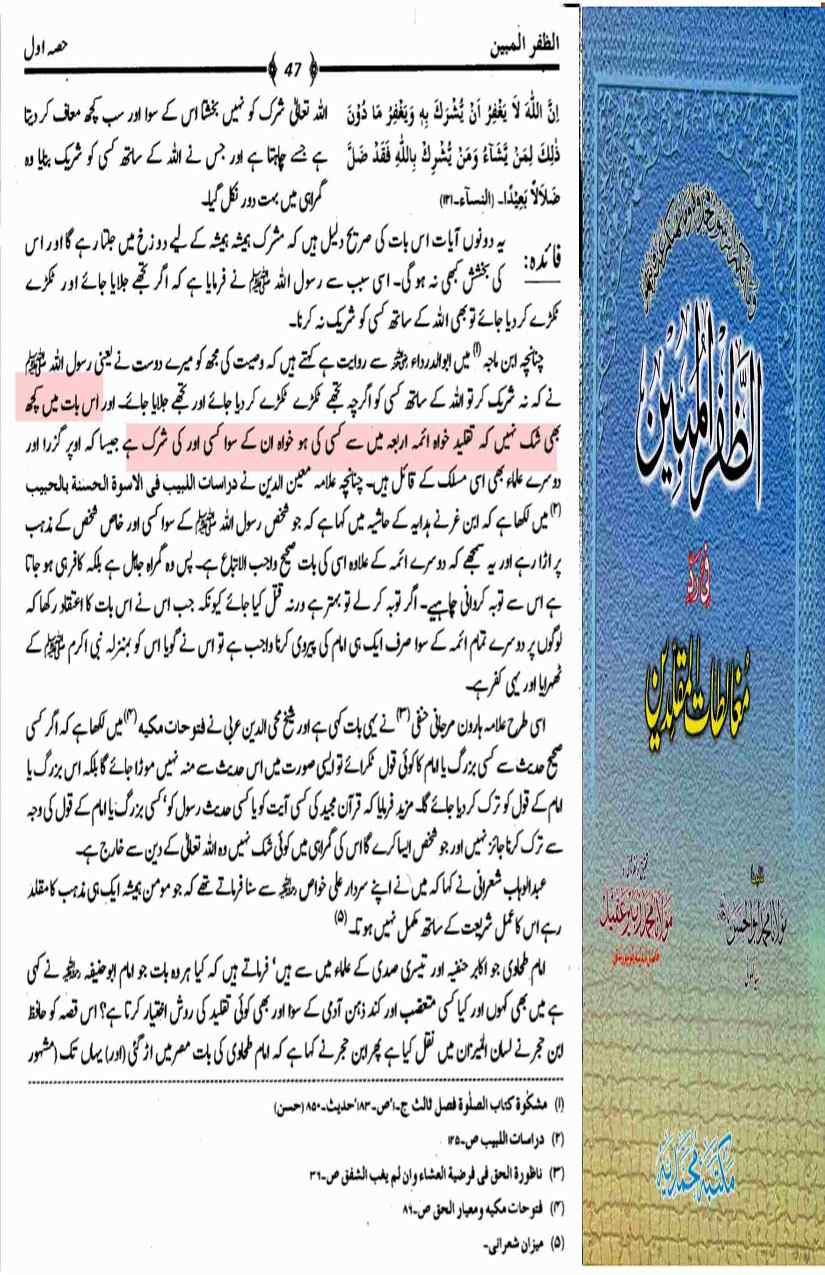 الظفر المبین
حصہ اول
47
اِنَّ اللّٰهَ لَا يَغْفِرُ اَنْ يُّشْرَكَ بِهٖ وَيَغْفِرُ مَا دُوْنَ
ذٰلِكَ لِمَنْ يَّشَآءُ وَمَنْ يُّشْرِكْ بِاللّٰهِ فَقَدْ ضَلَّ
ضَلَالًا بَعِيْدًا۔ (النسآء۔۱۳۱)
اللہ تعالیٰ شرک کو نہیں بخشتا اس کے سوا اور سب کچھ معاف کر دیتا
ہے جسے چاہتا ہے اور جس نے اللہ کے ساتھ کسی کو شریک بنایا وہ
گمراہی میں بہت دور نکل گیا۔
فائدہ: یہ دونوں آیات اس بات کی صریح دلیل ہیں کہ مشرک ہمیشہ ہمیشہ کے لیے دوزخ میں جلتا رہے گا اور اس
کی بخشش کبھی نہ ہو گی۔ اسی سبب سے رسول اللہ ﷺ نے فرمایا ہے کہ اگر تجھے جلایا جائے اور ٹکڑے
ٹکڑے کر دیا جائے تو بھی اللہ کے ساتھ کسی کو شریک نہ کرنا۔
چنانچہ ابن ماجہ (۱) میں ابوالدرداء رضی اللہ عنہ سے روایت ہے کہتے ہیں کہ وصیت کی مجھ کو میرے دوست نے یعنی رسول اللہ ﷺ
نے کہ نہ شریک کر تو اللہ کے ساتھ کسی کو اگرچہ تجھے ٹکڑے ٹکڑے کر دیا جائے اور تجھے جلایا جائے۔ اور اس بات میں کچھ
بھی شک نہیں کہ تقلید خواہ ائمہ اربعہ میں سے کسی کی ہو خواہ ان کے سوا کسی اور کی شرک ہے جیسا کہ اوپر گزرا اور
دوسرے علماء بھی اسی مسلک کے قائل ہیں۔ چنانچہ علامہ معین الدین نے دراسات اللبیب فی الاسوۃ الحسنۃ بالحبیب
(۲) میں لکھا ہے کہ ابن عز نے ہدایہ کے حاشیہ میں کہا ہے کہ جو شخص رسول اللہ ﷺ کے سوا کسی اور خاص شخص کے مذہب
پر اڑا رہے اور یہ سمجھے کہ دوسرے ائمہ کے علاوہ اسی کی بات صحیح واجب الاتباع ہے۔ پس وہ گمراہ جاہل ہے بلکہ کافر ہی ہو جاتا
ہے اس سے توبہ کروانی چاہیے۔ اگر توبہ کر لے تو بہتر ہے ورنہ قتل کیا جائے کیونکہ جب اس نے اس بات کا اعتقاد رکھا کہ
لوگوں پر دوسرے تمام ائمہ کے سوا صرف ایک ہی امام کی پیروی کرنا واجب ہے تو اس نے گویا اس کو بمنزلہ نبی اکرم ﷺ کے
ٹھہرایا اور یہی کفر ہے۔
اسی طرح علامہ ہارون مرجانی حنفی (۳) نے یہی بات کہی ہے اور شیخ محی الدین عربی نے فتوحات مکیہ (۴) میں لکھا ہے کہ اگر کسی
صحیح حدیث سے کسی بزرگ یا امام کا کوئی قول ٹکرائے تو ایسی صورت میں اس حدیث سے منہ نہیں موڑا جائے گا بلکہ اس بزرگ یا
امام کے قول کو ترک کر دیا جائے گا۔ مزید فرمایا کہ قرآن مجید کی کسی آیت کو یا کسی حدیث رسول کو' کسی بزرگ یا امام کے قول کی وجہ
سے ترک کرنا جائز نہیں اور جو شخص ایسا کرے گا اس کی گمراہی میں کوئی شک نہیں وہ اللہ تعالیٰ کے دین سے خارج ہے۔
عبدالوہاب شعرانی نے کہا کہ میں نے اپنے سردار علی خواص سے سنا فرماتے تھے کہ جو مومن ہمیشہ ایک ہی مذہب کا مقلد
رہے اس کا عمل شریعت کے ساتھ مکمل نہیں ہوتا۔ (۵)
امام طحاوی جو اکابر حنفیہ اور تیسری صدی کے علماء میں سے ہیں' فرماتے ہیں کہ کیا ہر وہ بات جو امام ابو حنیفہ نے کہی
ہے میں بھی کہوں اور کیا کسی متعصب اور کند ذہن آدمی کے سوا اور بھی کوئی تقلید کی روش اختیار کرتا ہے؟ اس قصہ کو حافظ
ابن حجر نے لسان المیزان میں نقل کیا ہے پھر ابن حجر نے کہا ہے کہ امام طحاوی کی بات مصر میں اڑ گئی (اور) یہاں تک (مشہور
(۱) مشکوۃ کتاب الصلوۃ فصل ثالث ج۔۱' ص۔۱۸۳' حدیث۔۸۵۰ (حسن)
(۲) دراسات اللبیب ص۔۱۲۵
(۳) ناظورۃ الحق فی فرضیۃ العشاء وان لم یغب الشفق ص۔۳۶
(۴) فتوحات مکیہ و معیار الحق ص۔۸۶
(۵) میزان شعرانی۔
الظفر المبین
فی رد
مغالطات المقلدین
مولانا محمد ابوالحسن
مکتبہ محمدیہ